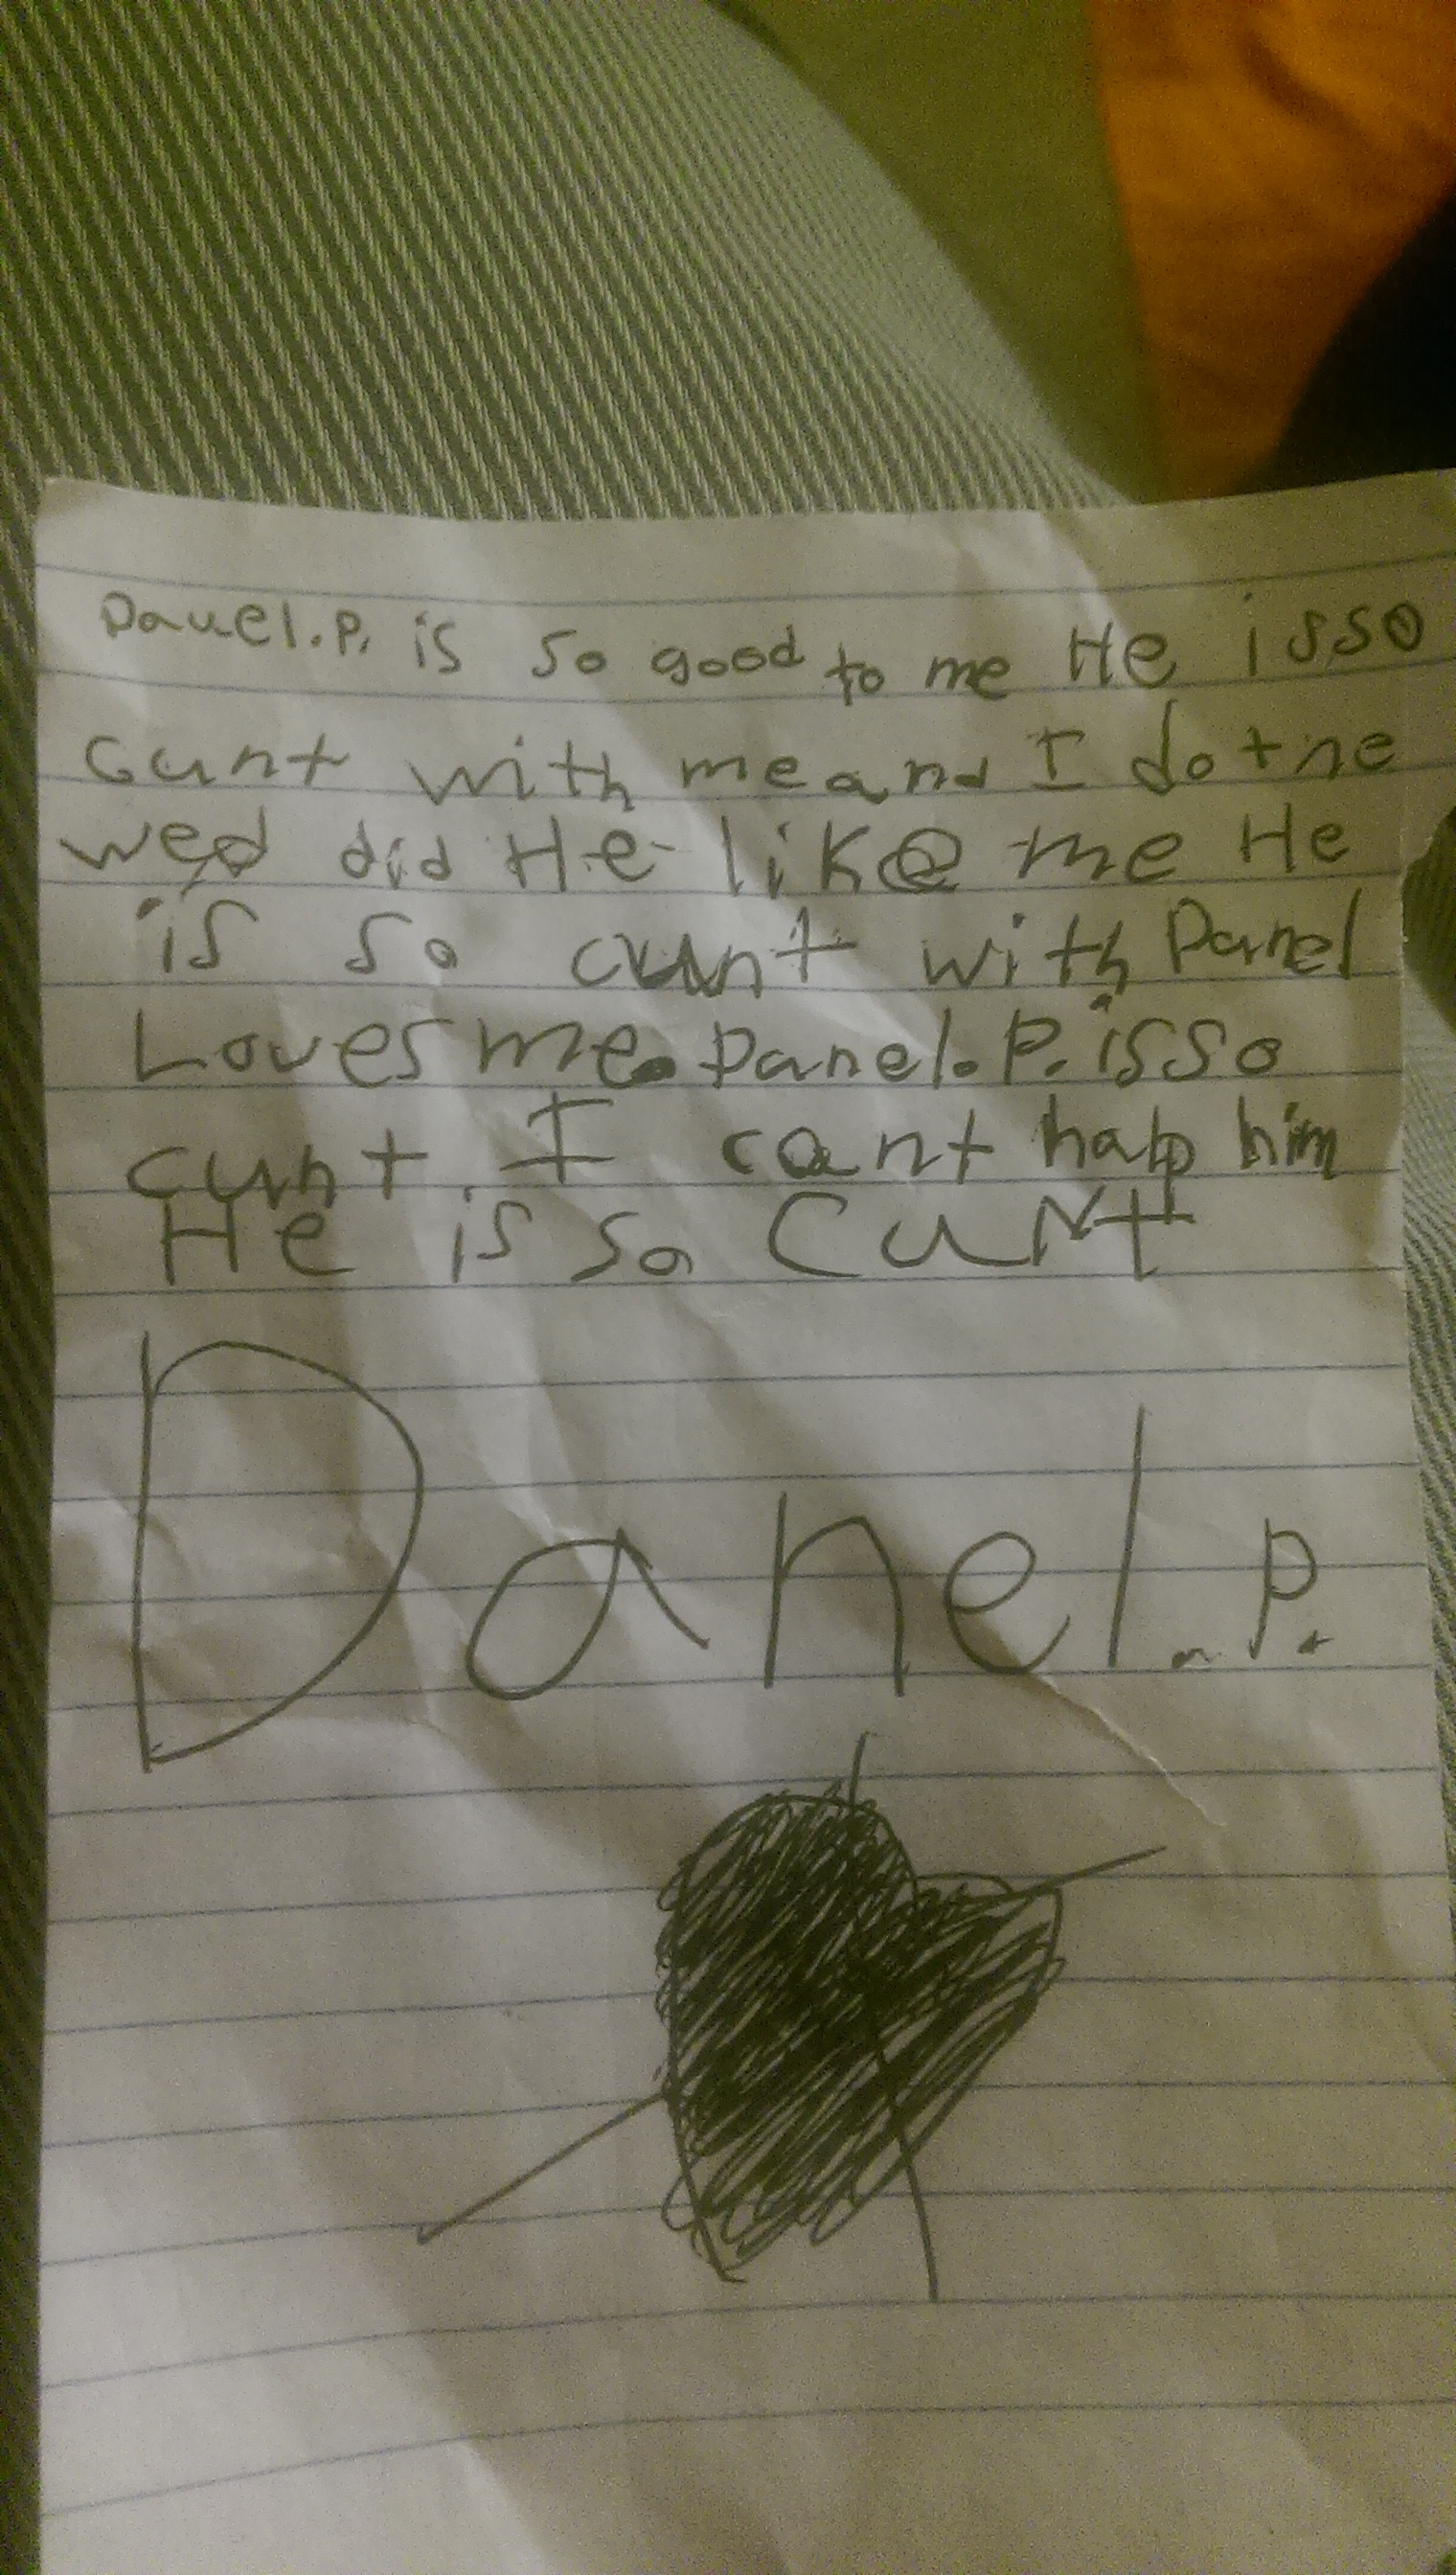 Danel.P. is so good to me He isso
cunt with me and I dotne
wed did He like me He
is so cunt with Danel
Loves me. Danel.P. isso
cunt I cant halp him
He is so CuNt
Danel.P.